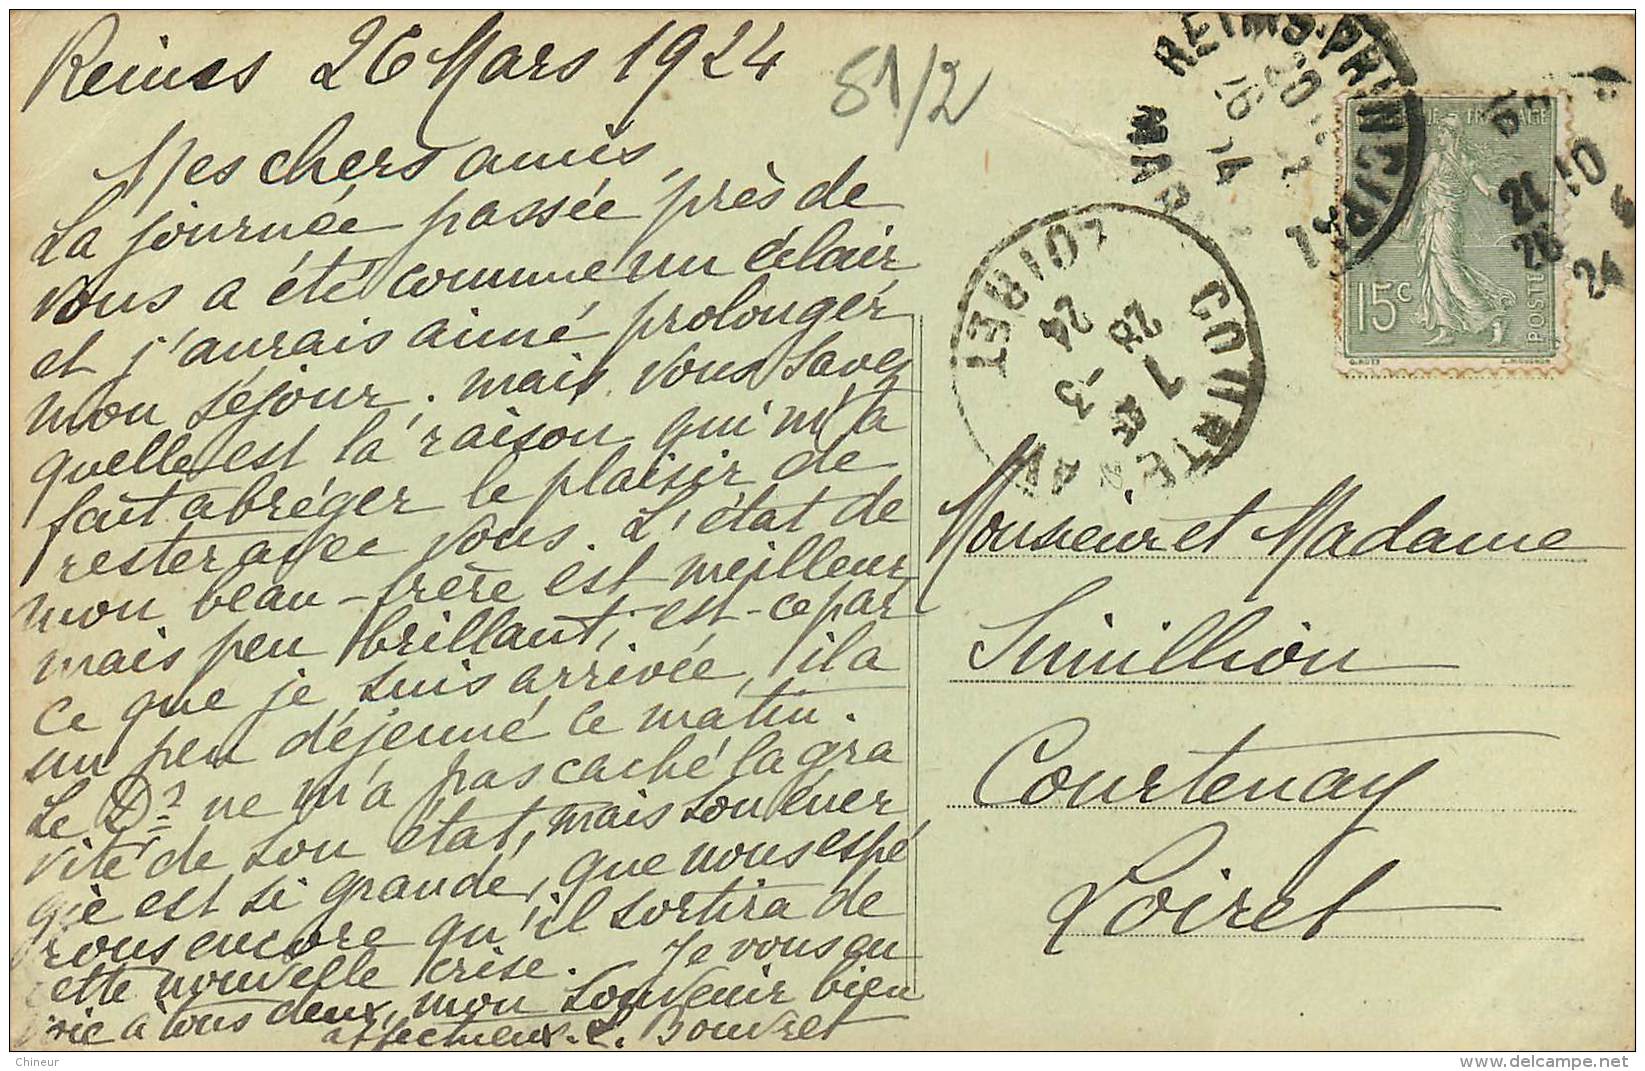 Reims 26 Mars 1924
51/2
Mes chers amis,
La journée passée près de
vous a été comme un éclair
et j'aurais aimé prolonger
mon séjour. mais vous savez
quelle est la raison qui m'a
fait abréger le plaisir de
rester avec vous. L'état de
mon beau-frère est meilleur
mais peu brillant, est-ce par
ce que je suis arrivée, il a
un peu déjeuné ce matin.
Le Dr ne m'a pas caché la gra
vité de son état, mais son éner
gie est si grande, que nous espé
rons encore qu'il sortira de
cette nouvelle crise. Je vous en
vie à tous deux, mon souvenir bien
affectueux. L. Bouvret
REIMS-PRINCIPAL
MARNE
COURTENAY
LOIRET
7
28 -3
24
15c
POSTES
Monsieur et Madame
Simillion
Courtenay
Loiret
Chineur
www.delcampe.net